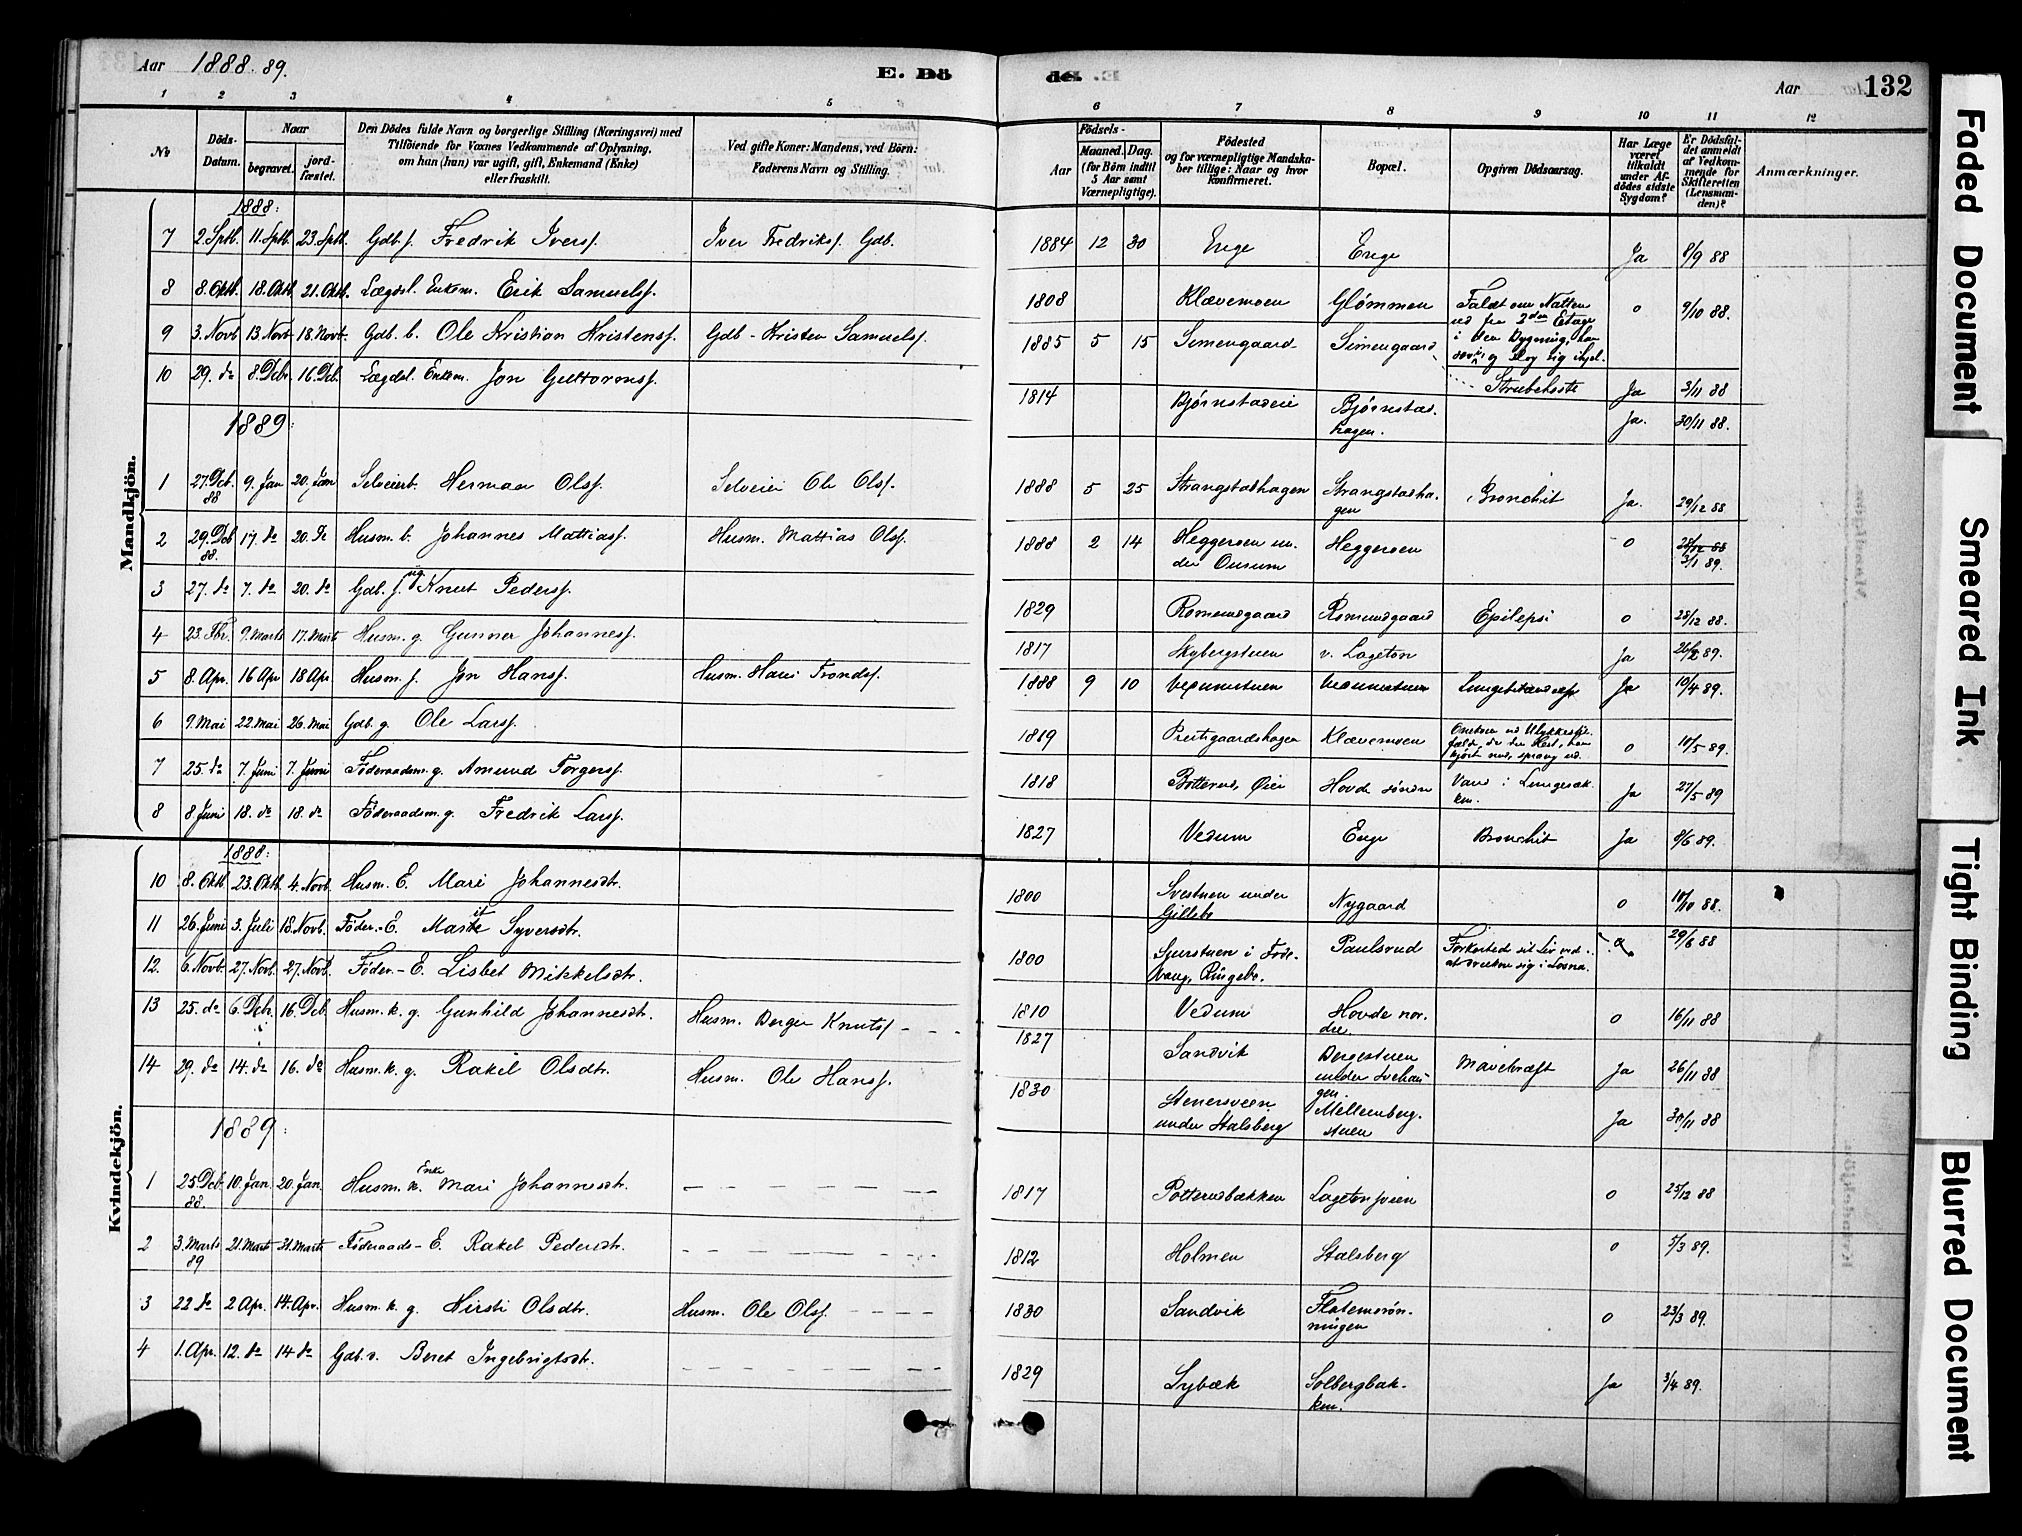 Aar 1888. 89.
E. Dö
de. E.
Aar
132
1 2 3 4 5
6 7 8 9 10 11 12
№
Döds-
Datum.
Naar
begravet.
jord-
fæstet.
Den Dödes fulde Navn og borgerlige Stilling (Næringsvei) med
Tilföiende for Voxnes Vedkommende af Oplysning,
om han (hun) var ugift, gift, Enkemand (Enke)
eller fraskilt.
Ved gifte Koner: Mandens, ved Börn:
Faderens Navn og Stilling.
Födsels-
Aar
Maaned. Dag.
(for Börn indtil
5 Aar samt
Værnepligtige).
Födested
og for værnepligtige Mandska-
ber tillige: Naar og hvor
konfirmeret.
Bopæl.
Opgiven Dödsaarsag.
Har Læge
været
tilkaldt
under Af-
dödes sidste
Sygdom?
Er Dödsfal-
det anmeldt
af Vedkom-
mende for
Skifteretten
(Lensman-
den)?
Anmærkninger.
Mandkjön.
1888:
7 2. Sptb. 11. Sptb. 23. Sptb. Gdb. s. Fredrik Iverss. Iver Fredrikss. Gdb. 1884 12 30 Enge Enge Ja 8/9 88
8 8. Oktb. 18. Oktb. 21. Oktb. Lægdsl. Enkem. Erik Samuelss. 1808 Klævemoen Glömmen Faldt om Natten
ned fra 2den Etage
i den Bygning, han
og slog sig ihjel. o 9/10 88.
9 3. Novb. 13. Novb. 18. Novb. Gdb. b. Ole Kristian Kristenss. Gdb. Kristen Samuelss. 1885 5 15 Simengaard Simengaard Strubehoste Ja 3/11 88
10 29. do 8. Deb. 16. Deb. Lægdsl. Enkem. Jon Guttormss. 1814 Björnstadeie Björnstad-
hagen. Ja. 30/11 88.
1889:
1 27. Deb. 88 9. Jan 20. Jan Selveierb. Herman Olss. Selveier Ole Olss. 1888 5 25 Strangstadhagen Strangstadha-
gen Bronchit Ja. 29/12 88
2 29. Deb 88. 17. do 20. do Husm. b. Johannes Mattiass. Husm. Mattias Olss. 1888 2 14 Heggeroen un-
der Heggeroen o 3/1 89.
3 27. do 7. do 20. do Gdb. s. ug. Knut Pederss. 1829 Romundgaard Romundgaard Epilepsi o 28/12 88.
4 23. Fbr. 9. Marts 17. Marts Husm. g. Gunner Johanness. 1817 Skybergstuen v. Lageton Ja 26/2 89.
5 8. Apr. 16 Apr 18 Apr. Husm. s. Jon Hanss. Husm. Hans Tronds. 1888 9 10 Vedumstuen Vedumstuen Ja 10/4 89.
6 9. Mai 22. Mai 26. Mai Gdb. g. Ole Larss. 1819 Prestgaardshagen Klævemoen o 10/5 89.
7 25. do 7. Juni 7. Juni Föderaadsm. g. Amund Torgerss. 1818 Öier Hovde söndre Vand i Lungesæk-
ken. Ja 27/5 89
8 8. Juni 18. do 18. do Föderaadsm. g. Fredrik Larss. 1827 Vedum Enge Bronchit Ja 8/6 89.
Kvindekjön.
1888:
10 8. Oktb 23. Oktb. 4. Novb. Husm. E. Mari Johannesdtr. 1800 Svestuen under
Gillebo Nygaard o 10/10 88.
11 26. Juni 3. Juli 18. Novb. Föder.-E. Marit Syversdtr. 1800 Sjurstuen i Fode-
vang, Ringebo. Paulsrud Forkortede sit Liv ved
at drukne sig i Losna. o 29/6 88
12. 6. Novb. 27. Novb. 27. Novb. Föder.-E. Lisbet Mikkelsdtr. 1810 Vedum Hovde nor-
dre o 16/11 88
13 25. do 6. Debr. 16. Deb. Husm. k. g. Gunhild Johannesdtr. Husm. Berger Knutss. 1827 Sandvik Bergestuen
under Svehau-
gen. Mavekræft Ja 26/11 88
14 29. do 14. do 16. do Husm. k. g. Rakel Olsdtr. Husm. Ole Hanss. 1830 Stenersveen
under Stalsberg Mellemberg-
stuen Ja 30/11 88
1889:
1 25 Deb. 88. 10. Jan. 20. Jan. Husm. k. Enke Mari Johannesdtr. 1817 Potterudbækken Lagetonsveen o 25/12 88
2 3. Marts 89 21. Marts 31. Marts Föderaads-E. Rakel Pedersdtr. 1812 Holmen Stalsberg o 5/3 89.
3 22 do 2 Apr. 14. Apr. Husm. k. g. Kirsti Olsdtr. Husm. Ole Olss. 1830 Sandvik Flatemorön-
ningen o 23/3 89.
4 1. Apr. 12. do 14 do Gdb. d. Beret Ingebrigtsdtr. 1829 Lybæk Solbergbak-
ken. Ja 3/4 89.
Faded Document
Smeared Ink
Tight Binding
Blurred Document